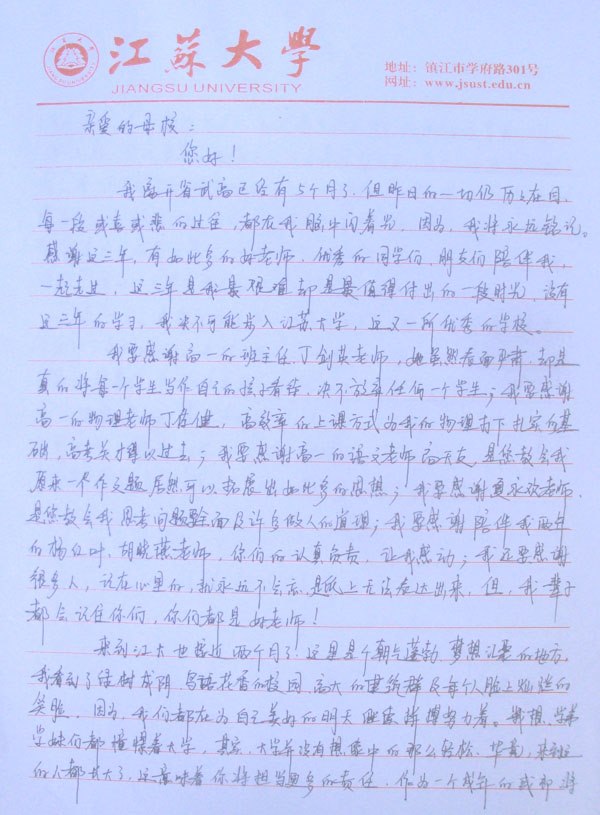 江苏大学
JIANGSU UNIVERSITY
地址：镇江市学府路301号
网址：www.jsust.edu.cn
亲爱的母校：
您好！
我离开省武高已经有5个月了，但昨日的一切仍历历在目，
每一段或喜或悲的过往，都在我脑中闪着光，因为，我将永远铭记。
感谢这三年，有如此多的好老师、优秀的同学们、朋友们陪伴我，
一起走过，这三年是我最艰难却是最值得付出的一段时光，没有
这三年的学习，我决不可能步入江苏大学，这又一所优秀的学校。
我要感谢高一的班主任丁剑英老师，她虽然表面严肃，却是
真的将每个学生当作自己的孩子看待，决不放弃任何一个学生；我要感谢
高一的物理老师丁健，高效率的上课方式为我的物理打下扎实的基
础，高考关才得以过去；我要感谢高一的语文老师高天友，是您教会我
原来一个作文题居然可以拓展出如此多的思想；我要感谢永欢老师，
是您教会我思考问题要全面及许多做人的道理；我要感谢陪伴我两年
的杨红叶、胡晓燕老师，你们的认真负责，让我感动；我还要感谢
很多人，记在心里的，就永远不会忘，是纸上无法表达出来，但，我一辈子
都会记住你们，你们都是好老师！
来到江大也接近两个月了，这里是个朝气蓬勃、梦想汇聚的地方，
我看到了绿树成阴、鸟语花香的校园，高大的建筑群及每个人脸上灿烂的
笑脸，因为，我们都在为自己美好的明天继续拼搏努力着。我想，学弟
学妹们都憧憬着大学，其实，大学并没有想象中的那么轻松、华丽，来到这
的人都长大了，这意味着你将担当更多的责任，作为一个成年的或即将